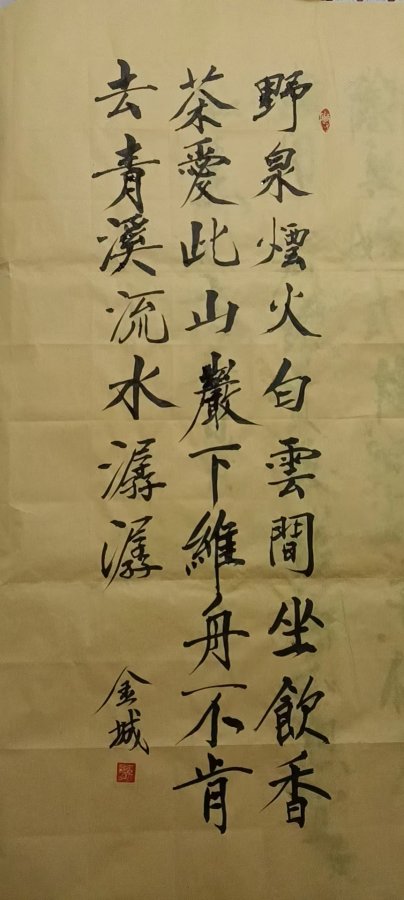 野泉煙火白雲間坐飲香
茶愛此山巖下維舟不肯
去青溪流水潺潺
金城